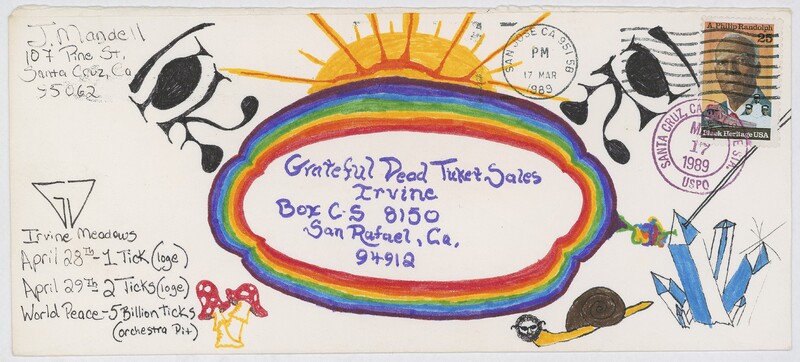 J. Mandell
107 Pine St.
Santa Cruz, Ca
95062
SAN JOSE CA 951 5B
PM
17 MAR
1989
A. Philip Randolph
25
Black Heritage USA
SANTA CRUZ, CA
17
1989
USPO
Grateful Dead Ticket Sales
Irvine
Box C-S 8150
San Rafael, Ca.
94912
Irvine Meadows
April 28th - 1 Tick (loge)
April 29th - 2 Ticks (loge)
World Peace - 5 Billion Ticks
(orchestra Pit)